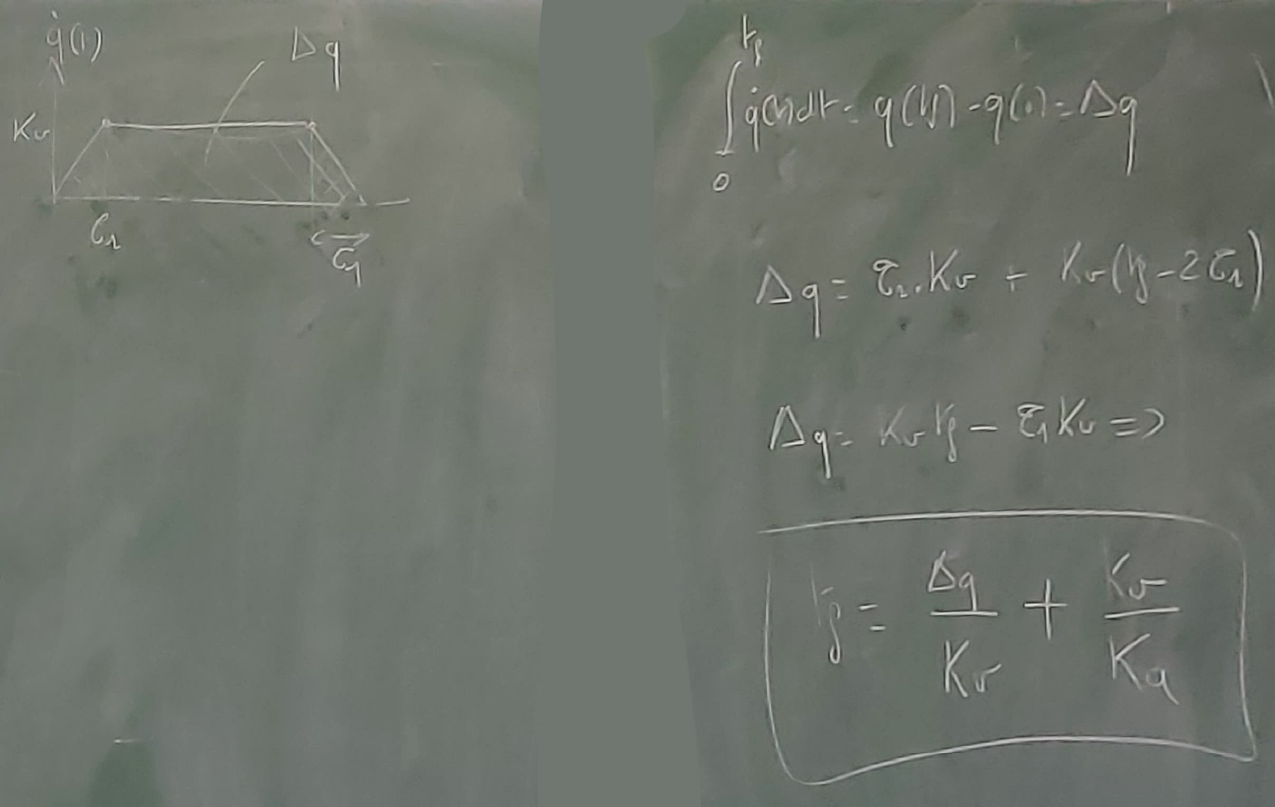 q̇(t)
Δq
Kv
τ₁
τ₁
∫₀^{tf} q̇(t)dt = q(tf) - q(0) = Δq
Δq = τ₁.Kv + Kv(tf - 2τ₁)
Δq = Kv tf - τ₁Kv =>
tf = Δq/Kv + Kv/Ka